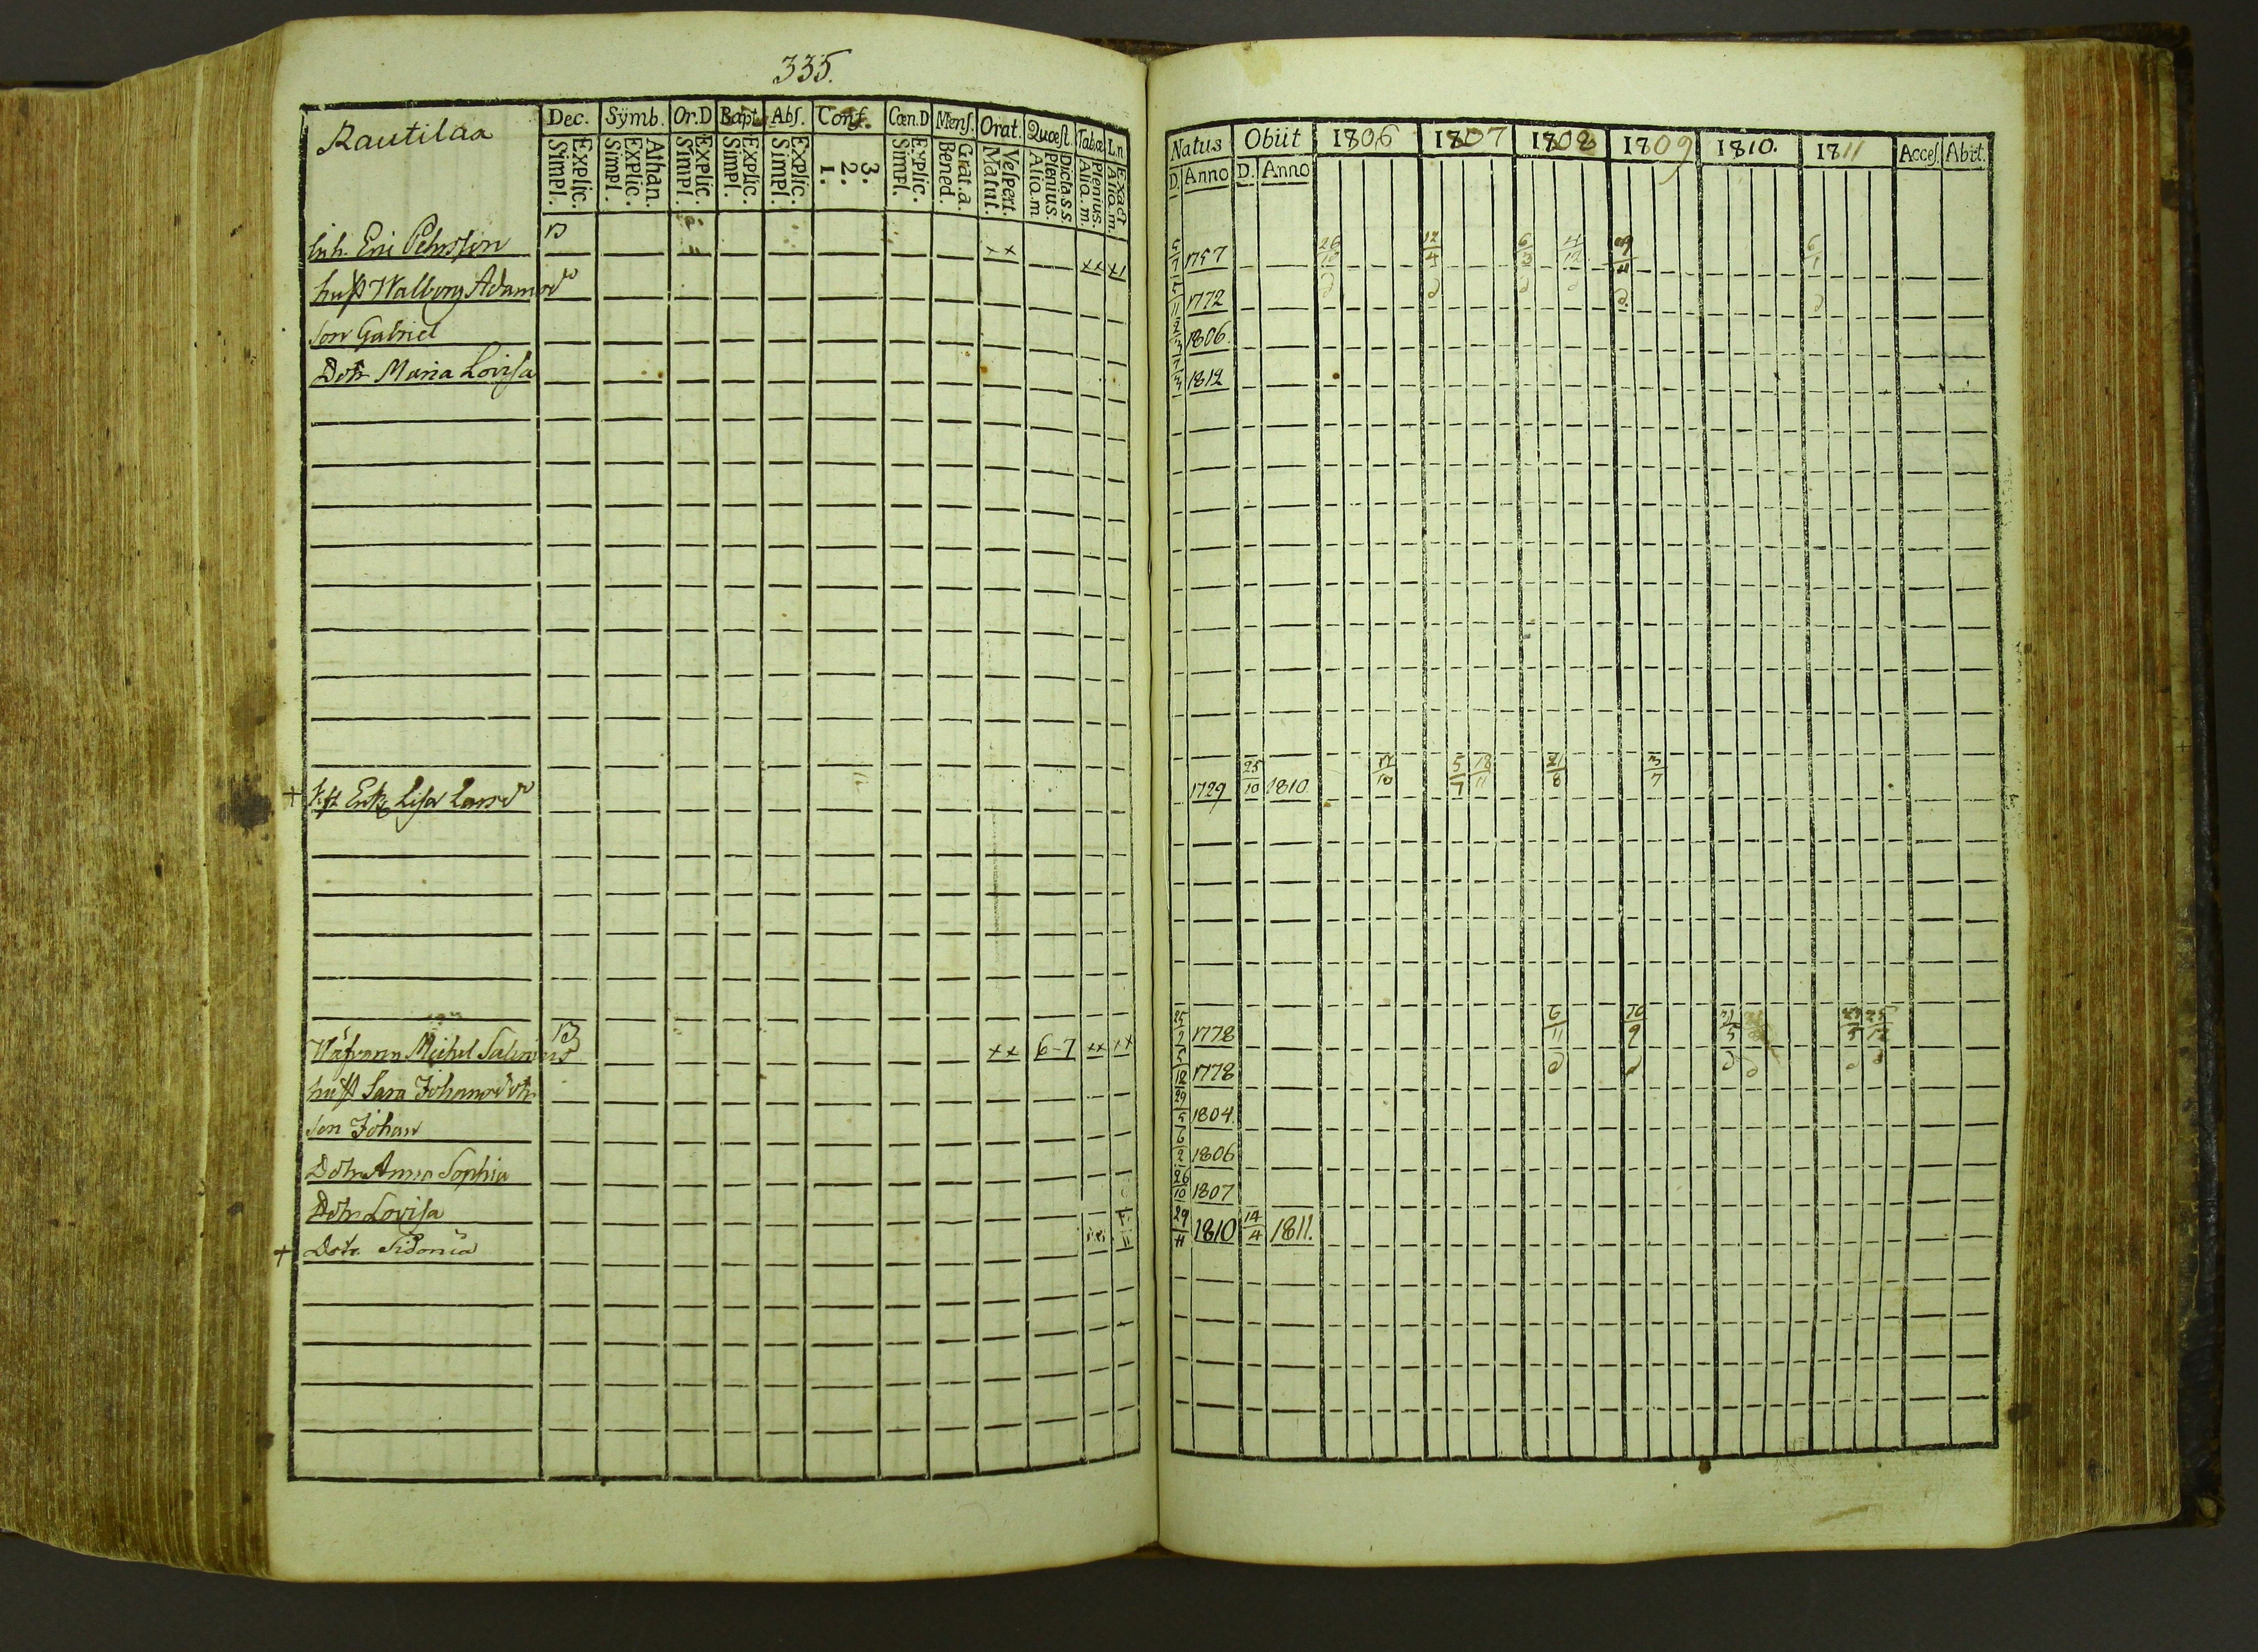 335.
Rautilaa
Dec. Symb. Or.D Bapt. Abs. Conf. Cœn.D Mens. Orat. Quæst. Tabæ L.n.
Explic. Simpl. Athan. Explic. Simpl. Explic. Simpl. Explic. Simpl. Explic. Simpl. 3. 2. 1. Explic. Simpl. Grat.a. Bened. Vespert. Matut. Dicta s s. Plenius. Alia.m. Plenius. Alia.m. Exact Alia.m.
Natus Obiit 1806 1807 1808 1809 1810. 1811 Acces. Abit.
D. Anno D. Anno
Inh. Eric Pehrsson B x x xx x1 5/7 1757 26/10 12/4 6/3 4/12 29/11 6/1
hust Walborg Adamsd 5/11 1772
son Gabriel 1806.
Dotr Maria Lovisa 1812
+ Enk. Lisa Larsd 1729 25/10 1810. 17/10 5/7 18/11 21/8 3/7
Michel Salenius B xx 6-7 xx xx 25/2 1778 6/11 10/9
hust Sara Johansdotr 5/12 1778
son Johan 29/5 1804.
Dotr Anna Sophia 6/2 1806
Dotr Lovisa 26/10 1807
+ Dotr. Sidonia 29/11 1810 14/4 1811.